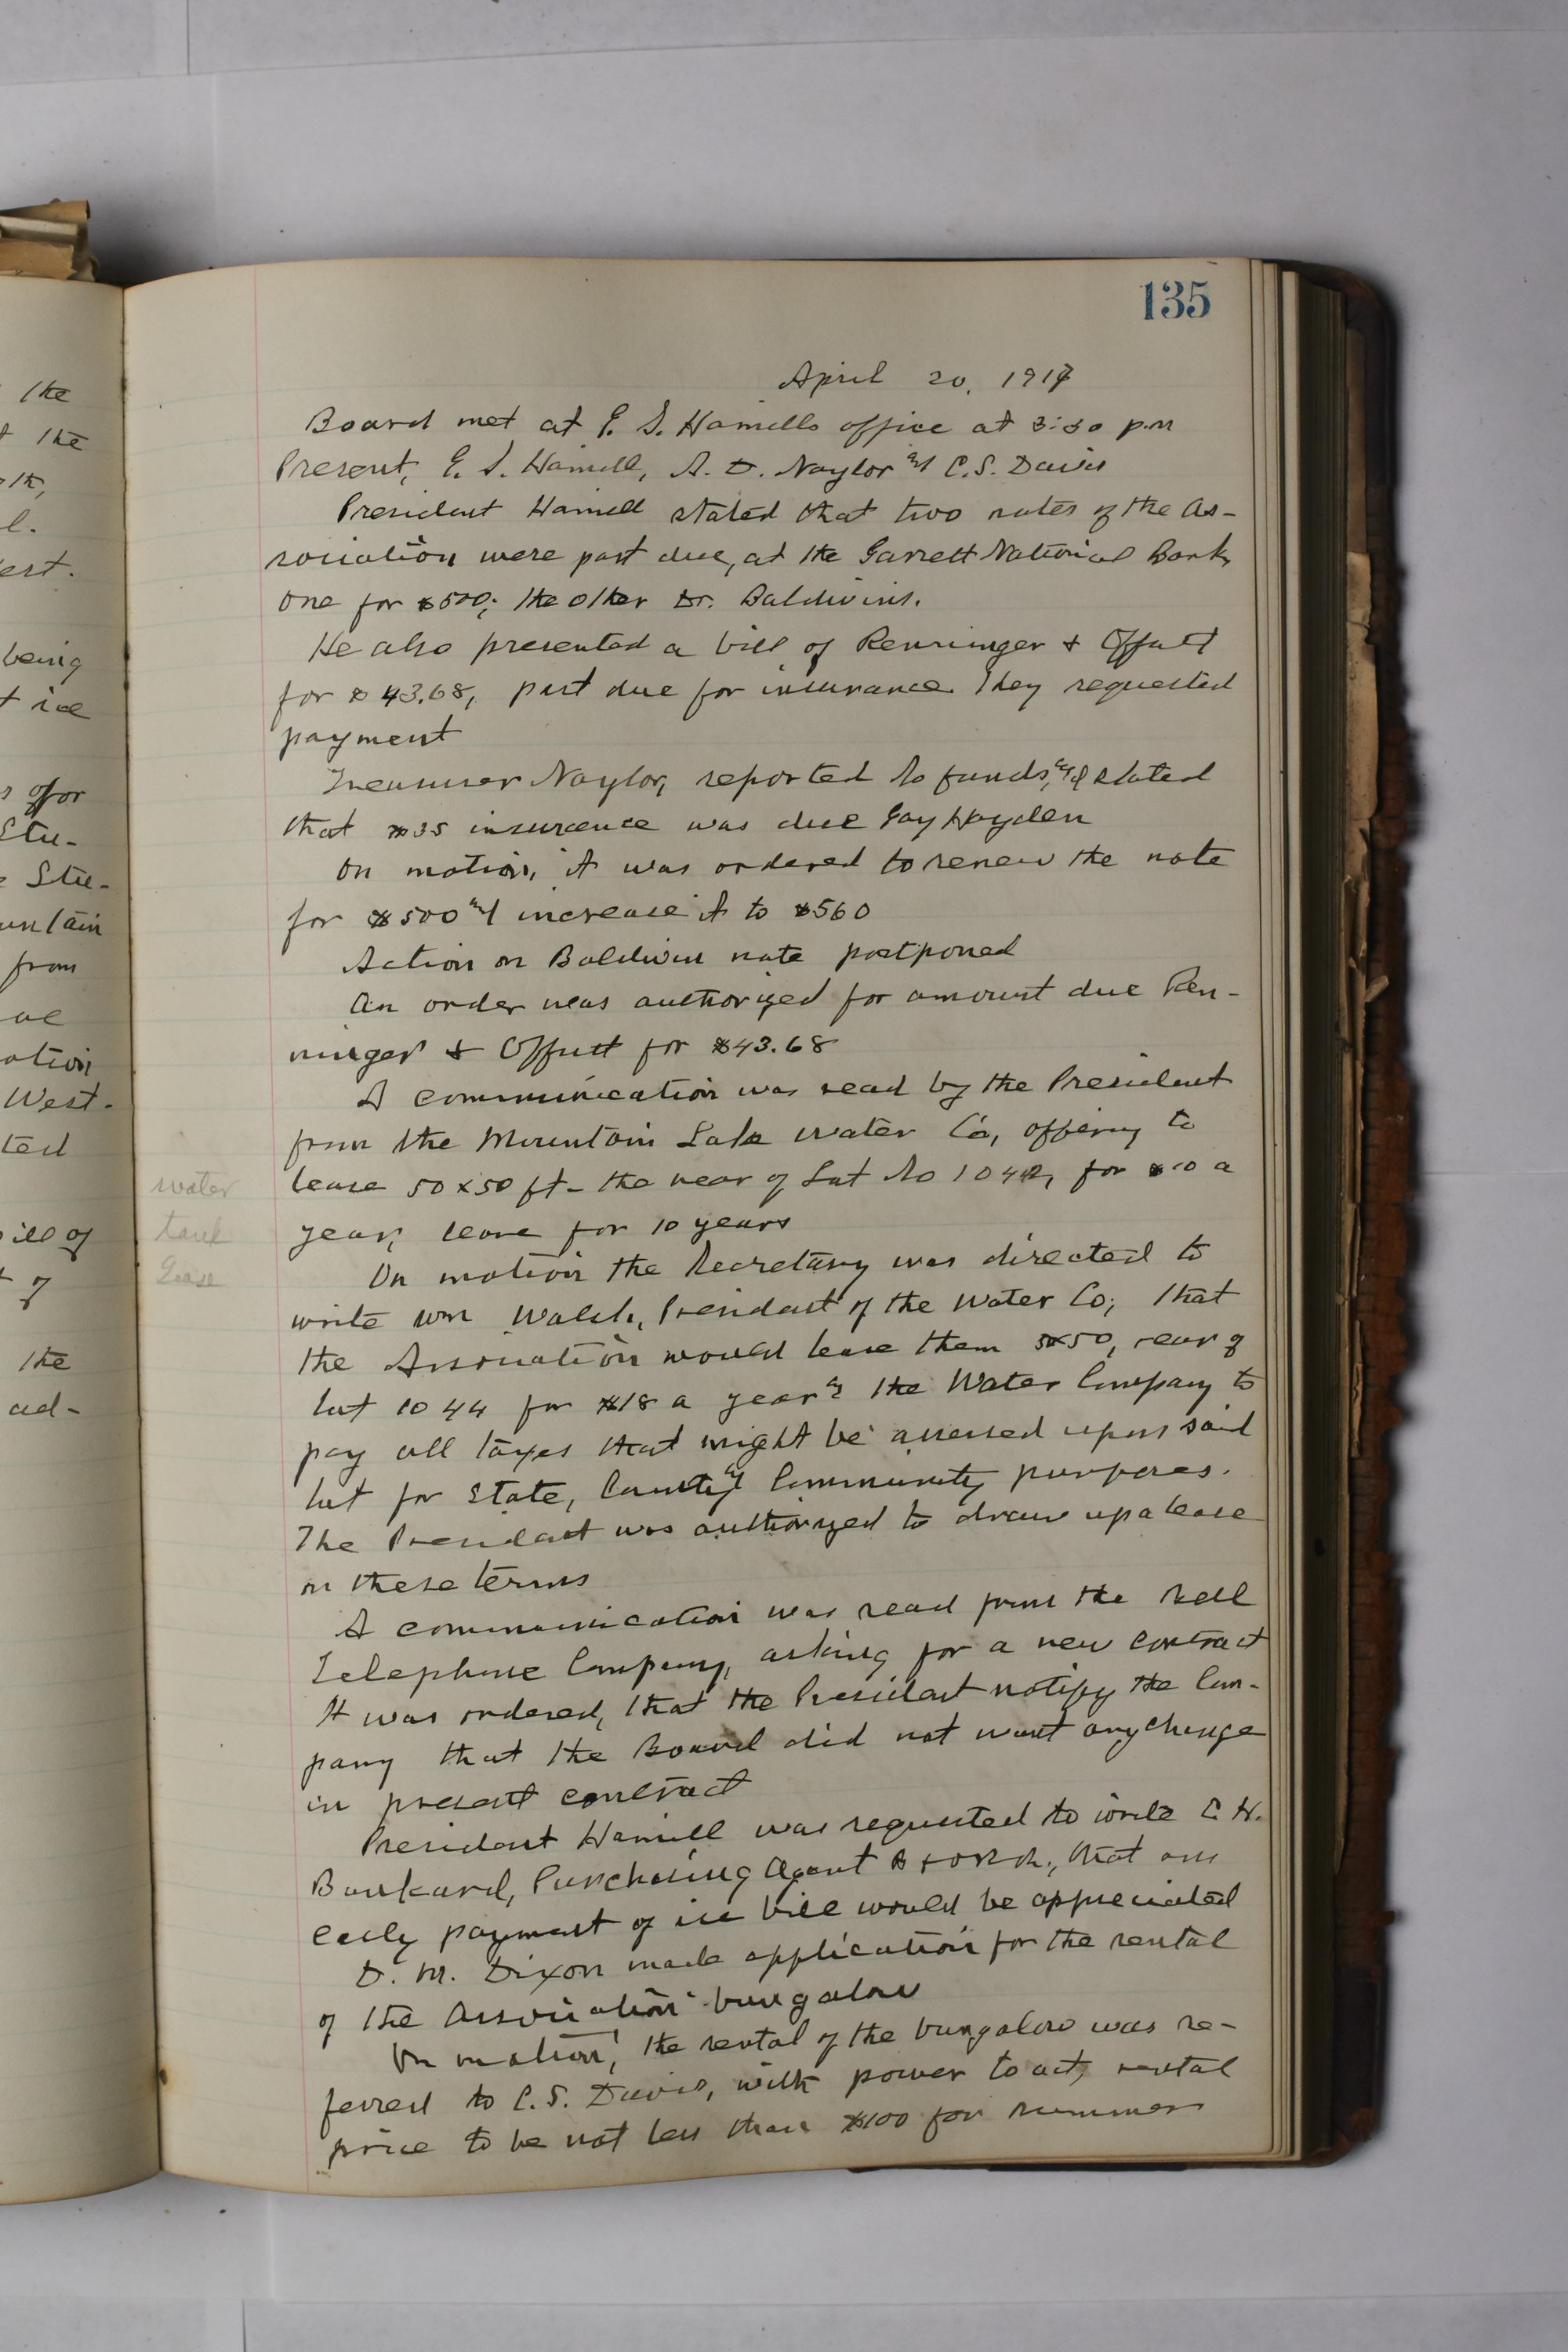 135
April 20, 1917
Board met at E. S. Hamills office at 3:30 p.m
Present, E. S. Hamill, A. D. Naylor and C.S. Davis
President Hamill stated that two notes of the As-
sociation were past due, at the Garrett National Bank,
one for $500; the other Dr. Baldwins.
He also presented a bill of Renninger & Offutt
for $43.68, past due for insurance. They requested
payment
Treasurer Naylor, reported no funds, and stated
that $35 insurance was due Gay Hayden
On motion, it was ordered to renew the note
for $500 and increase it to $560
Action on Baldwin note postponed
An order was authorized for amount due Ren-
ninger & Offutt for $43.68
A communication was read by the President
from the Mountain Lake Water Co, offering to
lease 50x50 ft - the rear of Lot No for $10 a
year, lease for 10 years
On motion the Secretary was directed to
write Wm Walsh, President of the Water Co; that
the Association would lease them 50x50, rear of
lot 1044 for $18 a year and the Water Company to
pay all taxes that might be assessed upon said
lot for State, County and Community purposes.
The President was authorized to draw up a lease
on these terms
A communication was read from the Bell
Telephone Company, asking for a new contract
It was ordered, that the President notify the Com-
pany that the Board did not want any change
in present contract
President Hamill was requested to write C. H.
Bankard, Purchasing Agent B & O R R., that an
early payment of ice bill would be appreciated
D. M. Dixon made application for the rental
of the Association bungalow
On motion, the rental of the bungalow was re-
ferred to C. S. Davis, with power to act, rental
price to be not less than $100 for summer
water
tank
lease
the
the
l.
est.
being
t ice
s offor
Stu-
Stu-
untain
from
ation
West.
ted
bill of
of
the
ad-